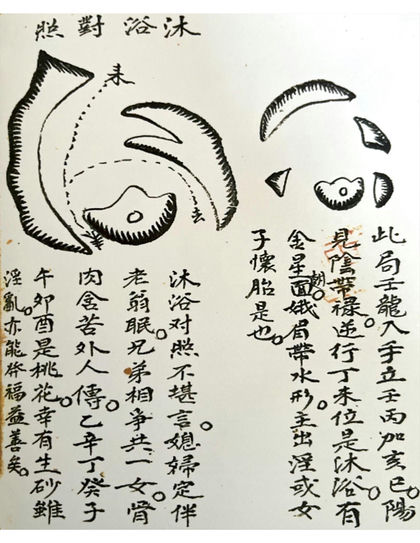 沐浴對照
来
去
来
此局壬龍入手立壬丙加亥巳。陽
見陰帶祿逆行丁未位是沐浴。有
金星面娥眉帶水形。主出淫或女
子懷胎是也。
沐浴对照不堪言。媳婦定伴
老翁眠。兄弟相爭共一女。骨
肉含苦外人傳。乙辛丁癸子
午卯酉是桃花。幸有生砂雖
淫亂亦能作福益善矣。